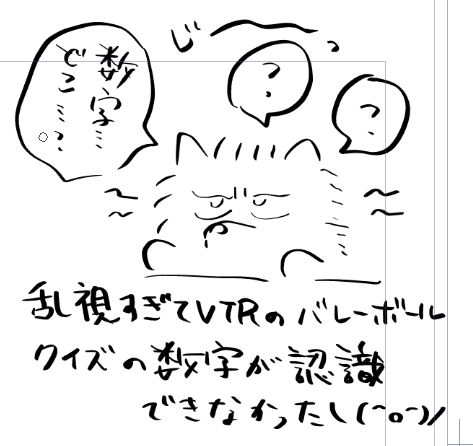 じーっ
数字…
どこ…?
?
?
乱視すぎてVTRのバレーボール
クイズの数字が認識
できなかったし(^o^)/